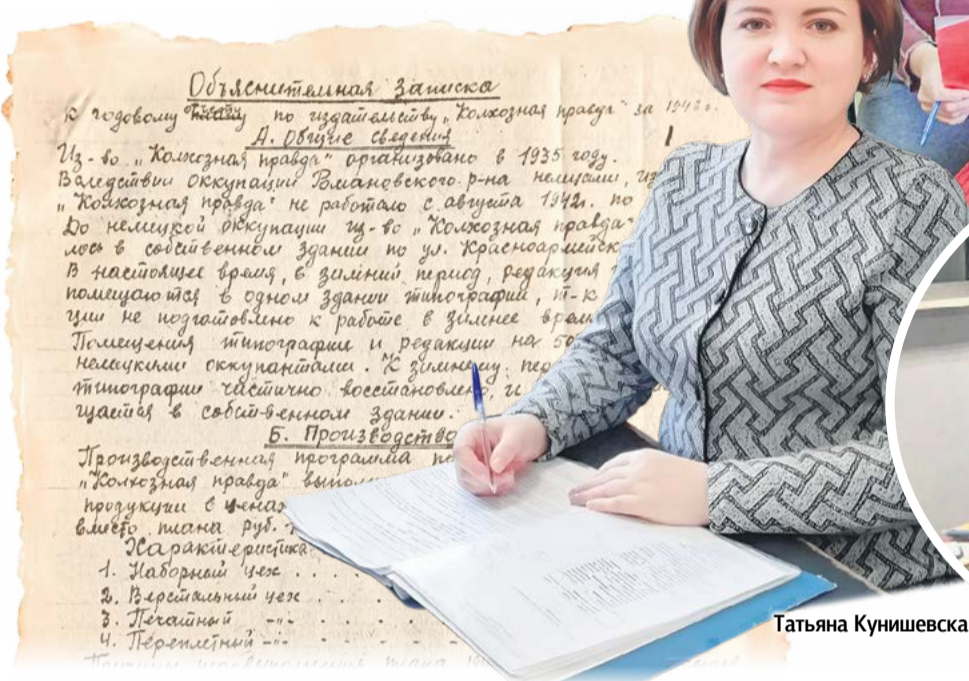 Объяснительная записка
К годовому отчету по издательству „Колхозная правда" за 1942 г.
1
А. Общие сведения
Из-во „Колхозная правда" организовано в 1935 году.
Вследствии оккупации Романовского р-на немцами, из
„Колхозная правда" не работало с августа 1942г. по
До немецкой оккупации из-во „Колхозная правда"
лось в собственном здании по ул. Красноармейск
В настоящее время, в зимний период, редакция
помещаются в одном здании типографии, т-к
ции не подготовлено к работе в зимнее врем
Помещения типографии и редакции на 50
немецкими оккупантами. К зимнему пер
типографии частично восстановлено, и
щается в собственном здании.
Б. Производство
Производственная программа по
„Колхозная правда" выпол
продукции в ценах
вместо плана руб.
Характеристика
1. Наборный цех . . . .
2. Верстальный цех . . .
3. Печатный -"- . . .
4. Переплетный -"- . . -
плана
Татьяна Кунишевска